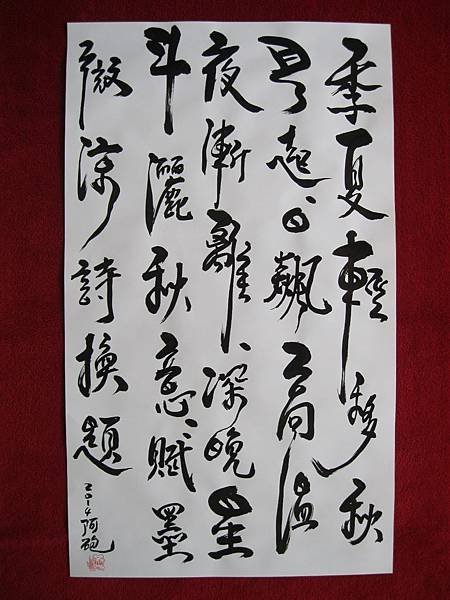 季夏輕移秋
早起、日飄高溫
夜漸離、深晚星
斗灑秋意、賦墨
微涼詩換題
2014阿砲